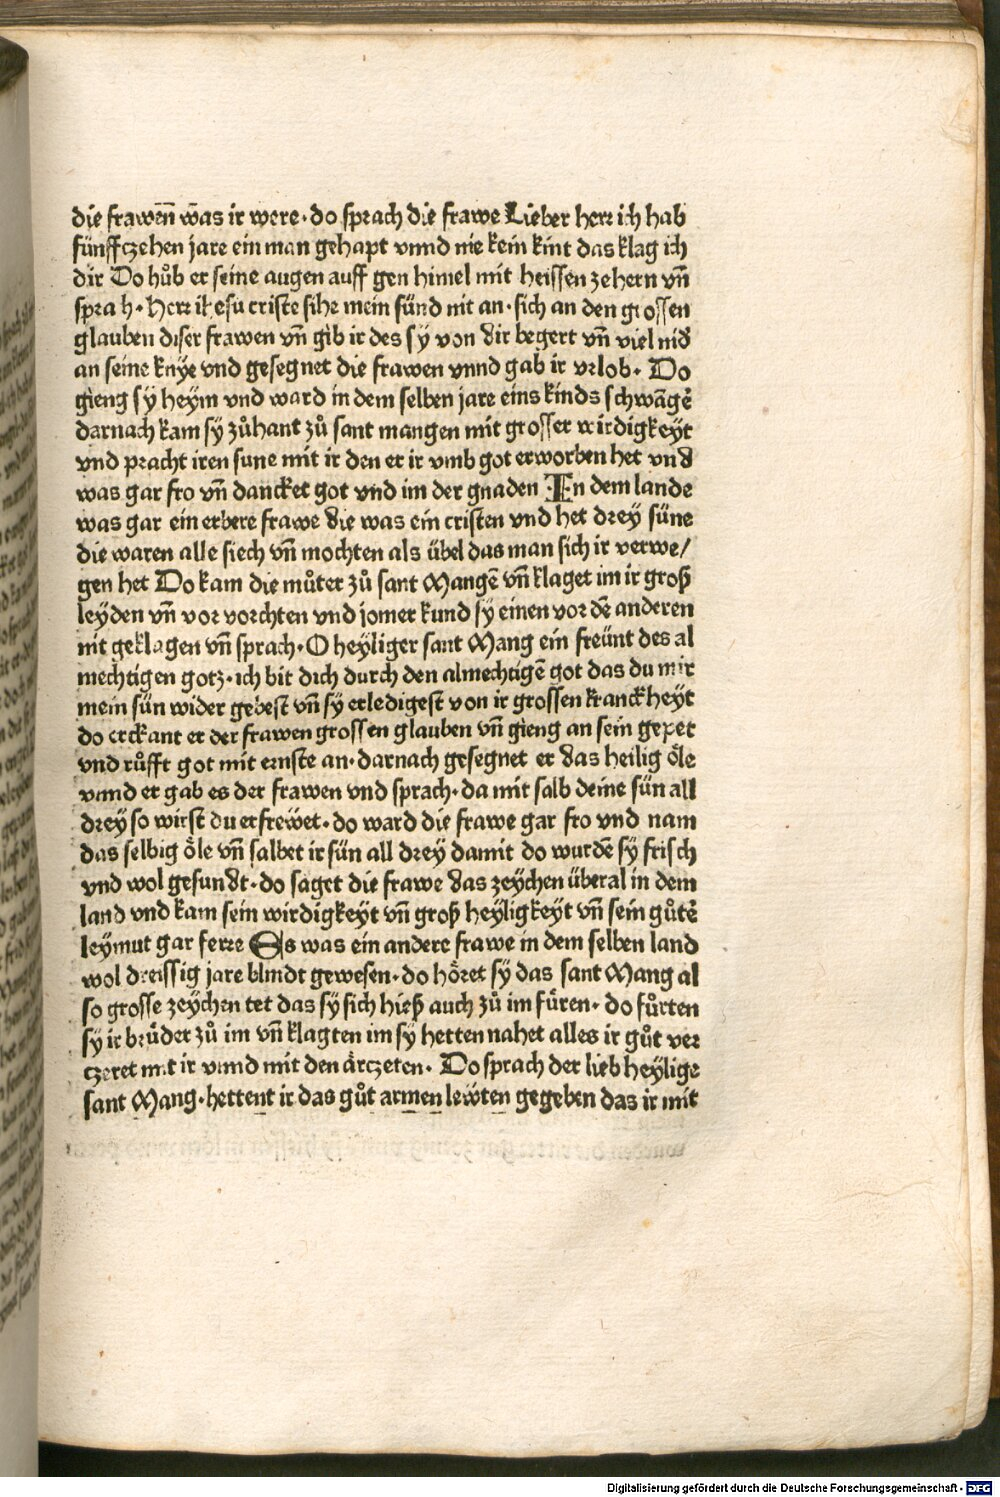 die frawen̄ w̄as ir were · do sprach die frawe Lieber herr ich hab
fünffczehen jare ein man gehapt vnnd nie kein kint das klag ich
dir Do hůb er seine augen auff gen himel mit heissen zehern vn̄
spra h · Herr ihesu criste sihe mein sünd nit an · sich an den grossen
glauben diser frawen vn̄ gib ir des sy von dir begert vn̄ viel nid
an seine knye vnd gesegnet die frawen vnnd gab ir vrlob · Do
gieng sy heym vnd ward in dem selben jare eins kinds schwāgē
darnach kam sy zůhant zů sant mangen mit grosser wirdigkeyt
vnd pracht iren sune mit ir den er ir vmb got erworben het vnd
was gar fro vn̄ dancket got vnd im der gnaden In dem lande
was gar ein erbere frawe die was ein cristen vnd het drey süne
die waren alle siech vn̄ mochten als übel das man sich ir verwe/
gen het Do kam die můter zů sant Mangē vn̄ klaget im ir groß
leyden vn̄ vor vorchten vnd jomer kund sy einen vor dē anderen
nit geklagen vn̄ sprach · O heyliger sant Mang ein freünt des al
mechtigen gotz · ich bit dich durch den almechtigē got das du mir
mein sün wider gebest vn̄ sy erledigest von ir grossen kranckheyt
do erckant er der frawen grossen glauben vn̄ gieng an sein gepet
vnd růfft got mit ernste an · darnach gesegnet er das heilig öle
vnnd er gab es der frawen vnd sprach · da mit salb deine sün all
drey so wirst du erfrewet · do ward die frawe gar fro vnd nam
das selbig öle vn̄ salbet ir sün all drey damit do wurdē sy frisch
vnd wol gesundt · do saget die frawe das zeychen überal in dem
land vnd kam sein wirdigkeyt vn̄ groß heyligkeyt vn̄ sein gůtē
leymut gar ferre Es was ein andere frawe in dem selben land
wol dreissig jare blindt gewesen · do höret sy das sant Mang al
so grosse zeychen tet das sy sich hieß auch zů im füren · do fůrten
sy ir brüder zů im vn̄ klagten im sy hetten nahet alles ir gůt ver
czeret mit ir vnnd mit den ärczeten · Do sprach der lieb heylige
sant Mang · hettent ir das gůt armen lewten gegeben das ir mit
Digitalisierung gefördert durch die Deutsche Forschungsgemeinschaft - DFG